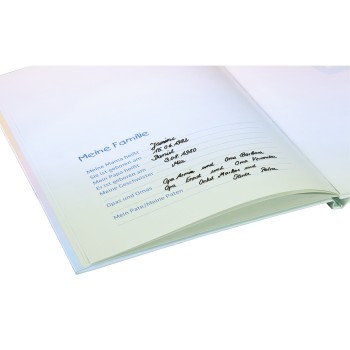 Meine Familie
Meine Mama heißt Jasmine
Sie ist geboren am 15.06.1982
Mein Papa heißt Daniel
Er ist geboren am 3.08.1980
Meine Geschwister Mia
Opas und Omas Opa Armin und Oma Barbara
Opa Ernst und Oma Veronika
Mein Pate/Meine Paten Onkel Markus und Tante Petra